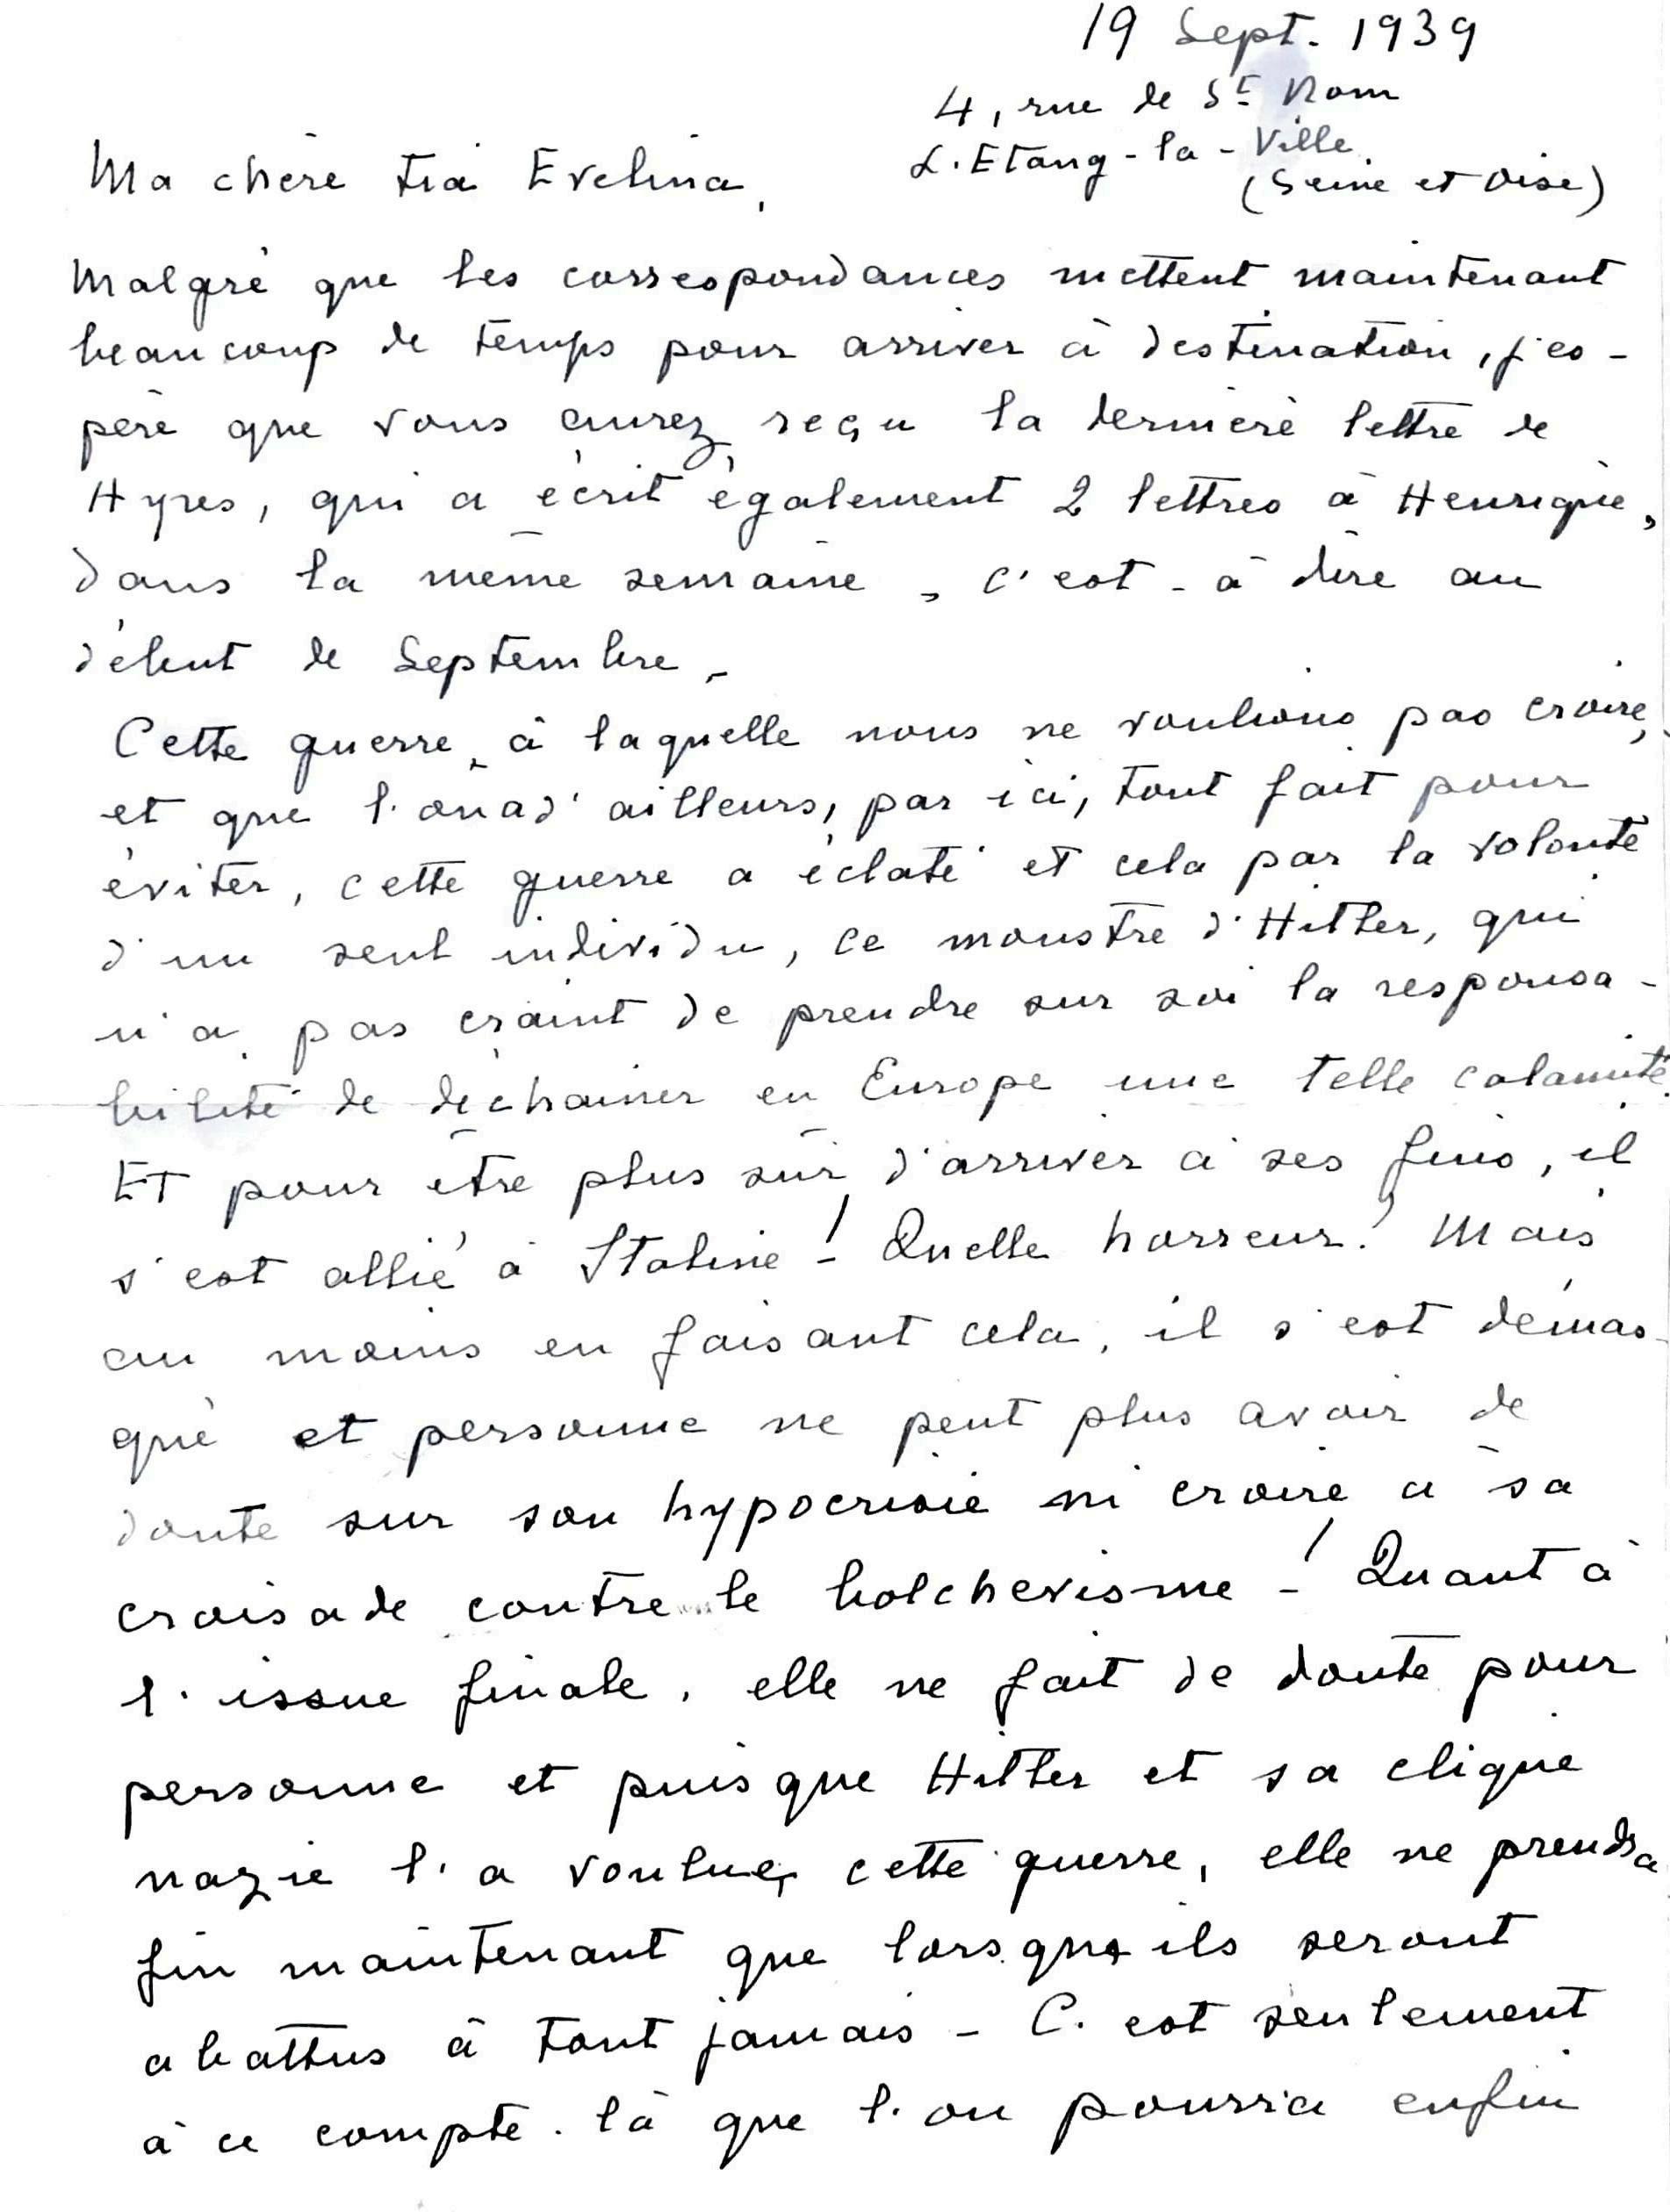 19 Sept. 1939
4, rue de St Nom
L'Etang-la-Ville
(Seine et Oise)
Ma chère tia Evelina,
Malgré que les correspondances mettent maintenant
beaucoup de temps pour arriver à destination, j'es-
père que vous aurez reçu la dernière lettre de
Hyres, qui a écrit également 2 lettres à Henrique,
dans la même semaine, c'est-à dire au
début de Septembre -
Cette guerre, à laquelle nous ne voulions pas croire,
et que l'on a d'ailleurs, par ici, tout fait pour
éviter, cette guerre a éclaté et cela par la volonté
d'un seul individu, ce monstre d'Hitler, qui
n'a pas craint de prendre sur soi la responsa-
bilité de déchainer en Europe une telle calamité.
Et pour être plus sûr d'arriver à ses fins, il
s'est allié à Staline ! - Quelle horreur ! Mais
au moins en faisant cela, il s'est démas-
qué et personne ne peut plus avoir de
doute sur son hypocrisie ni croire à sa
croisade contre le bolchevisme ! - Quant à
l'issue finale, elle ne fait de doute pour
personne et puisque Hitler et sa clique
nazie l'a voulue, cette guerre, elle ne prendra
fin maintenant que lorsque ils seront
abattus à tout jamais - C'est seulement
à ce compte-là que l'on pourra enfin